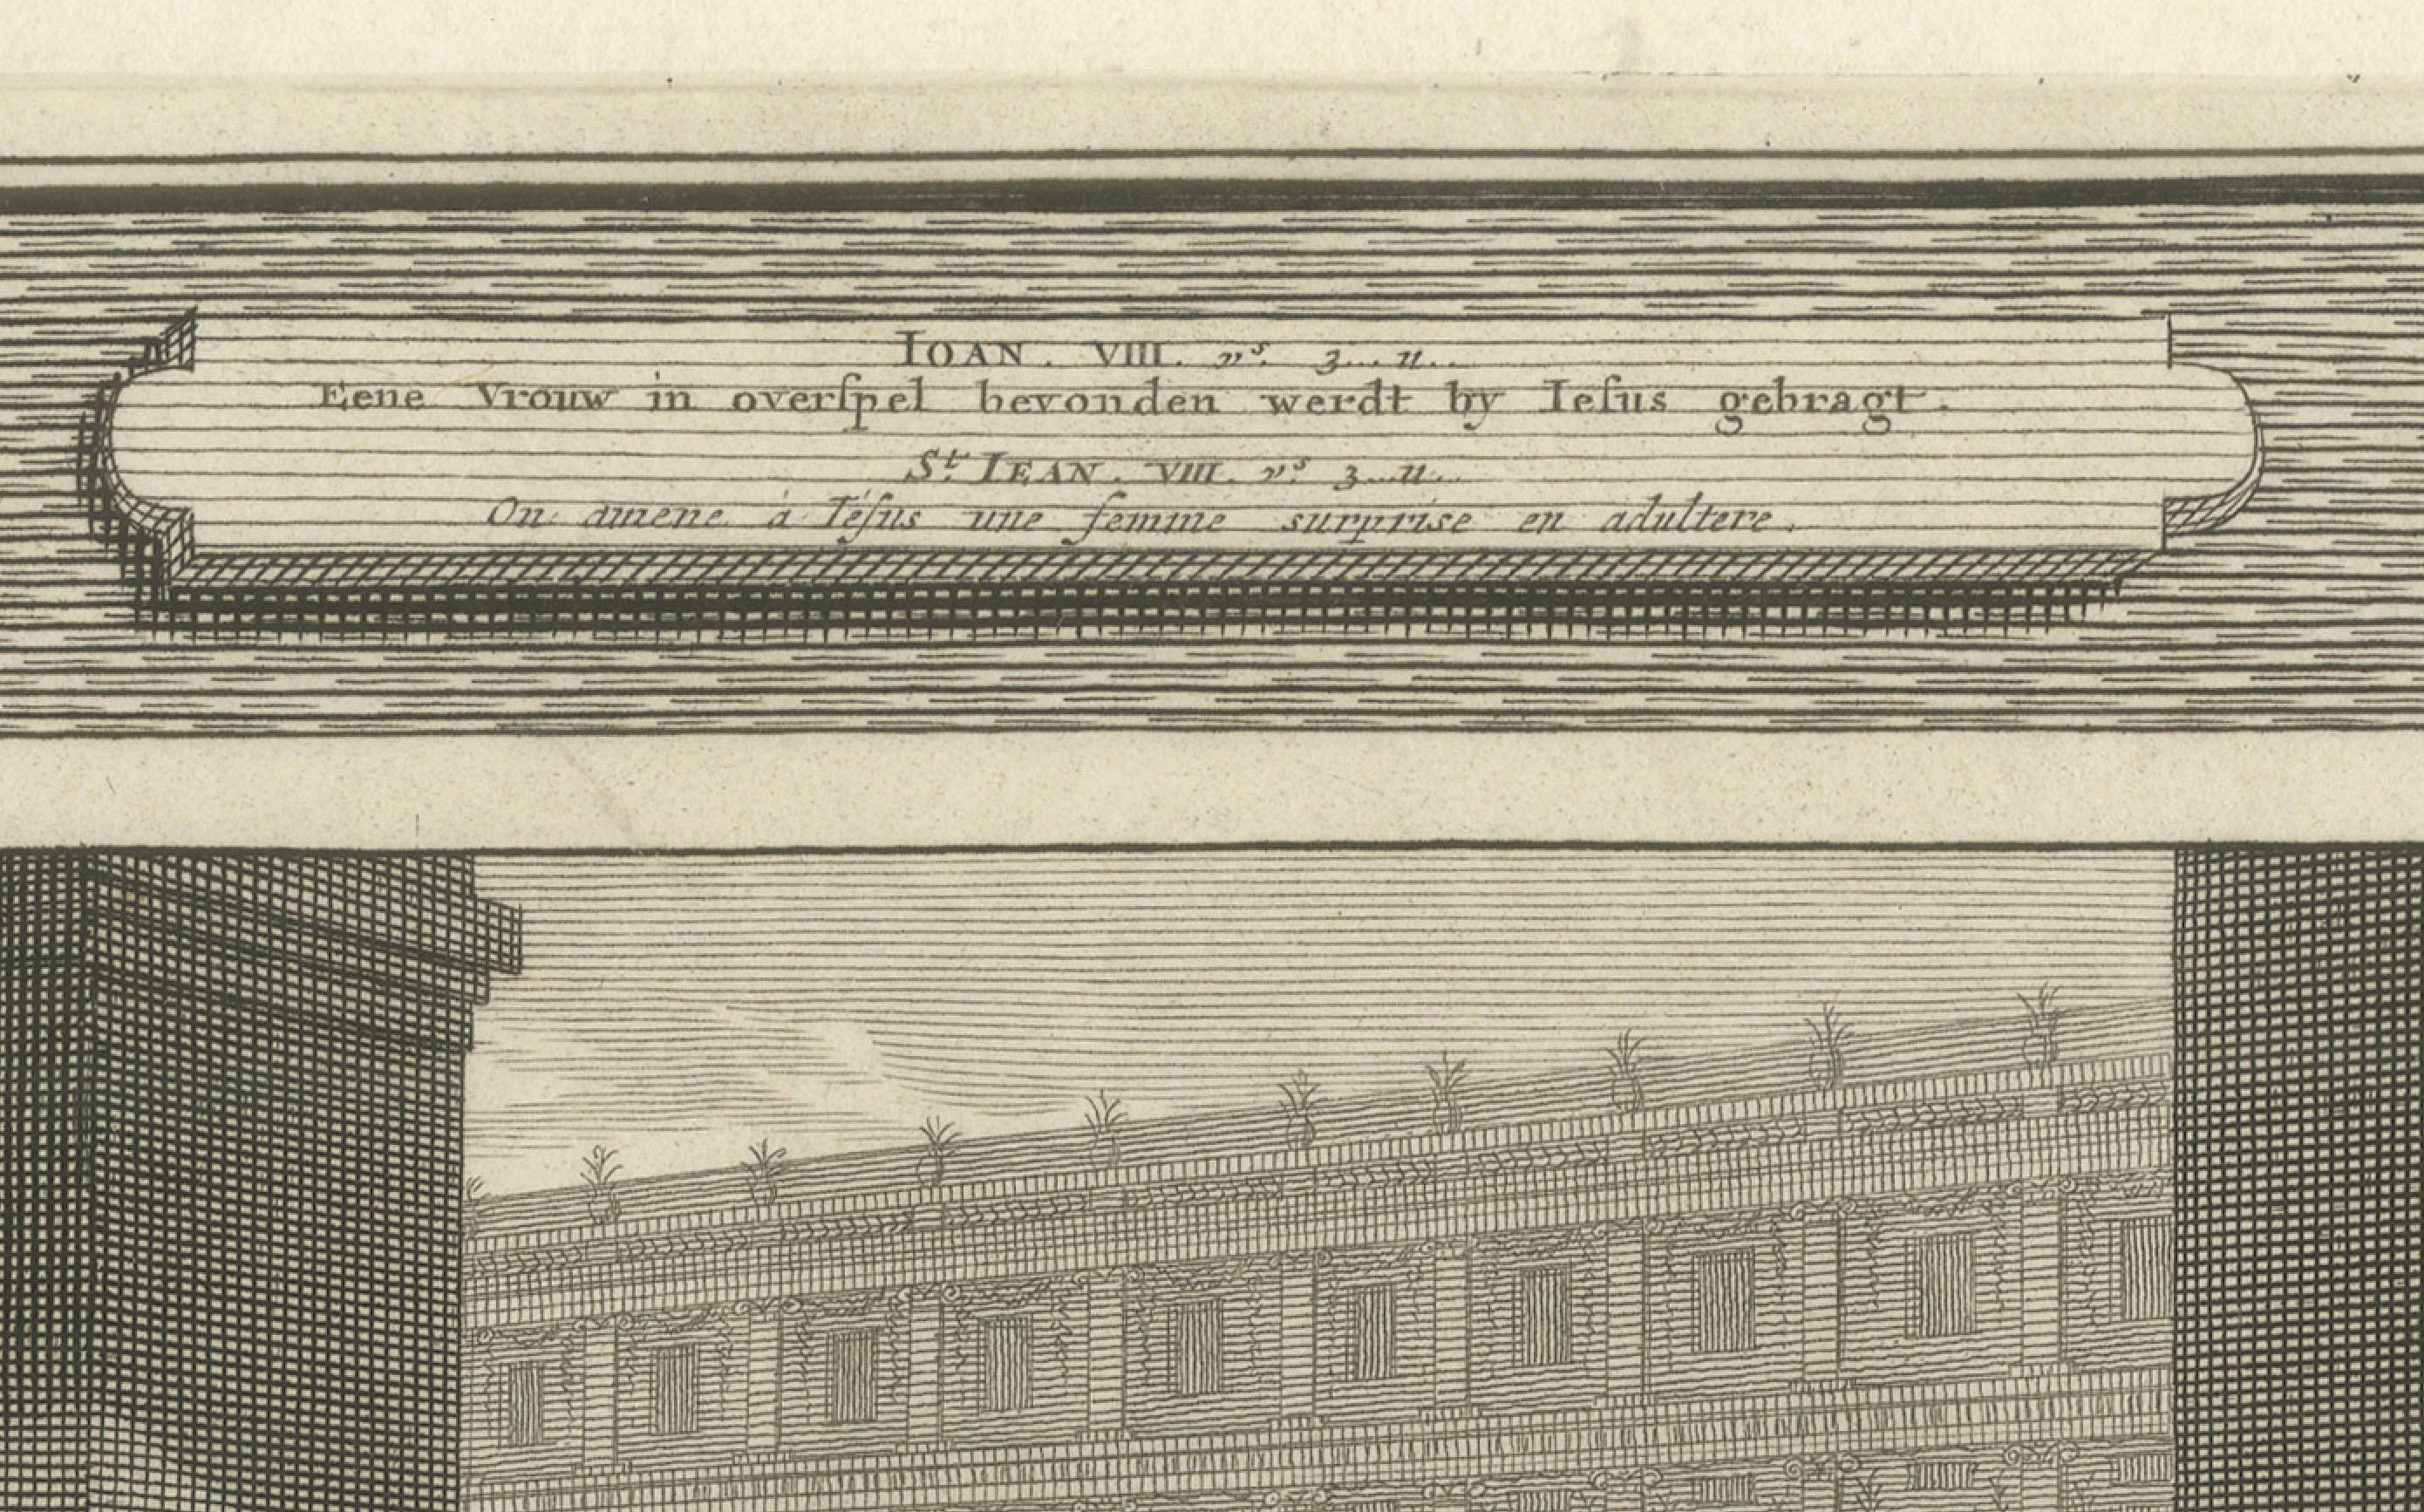 IOAN. VIII. vs. 3...11..
Eene Vrouw in overſpel bevonden werdt by Ieſus gebragt.
St. IEAN. VIII. vs. 3...11..
On amene à Iéſus une femme surprise en adultere.